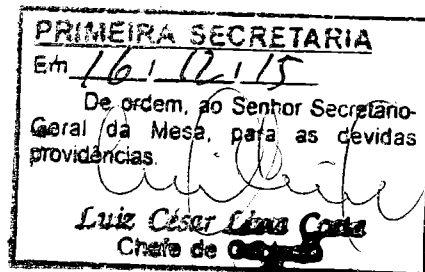 PRIMEIRA SECRETARIA
Em 16 / 12 / 15
De ordem, ao Senhor Secretário-
Geral da Mesa, para as devidas
providências.
Luiz César Lima Costa
Chefe de